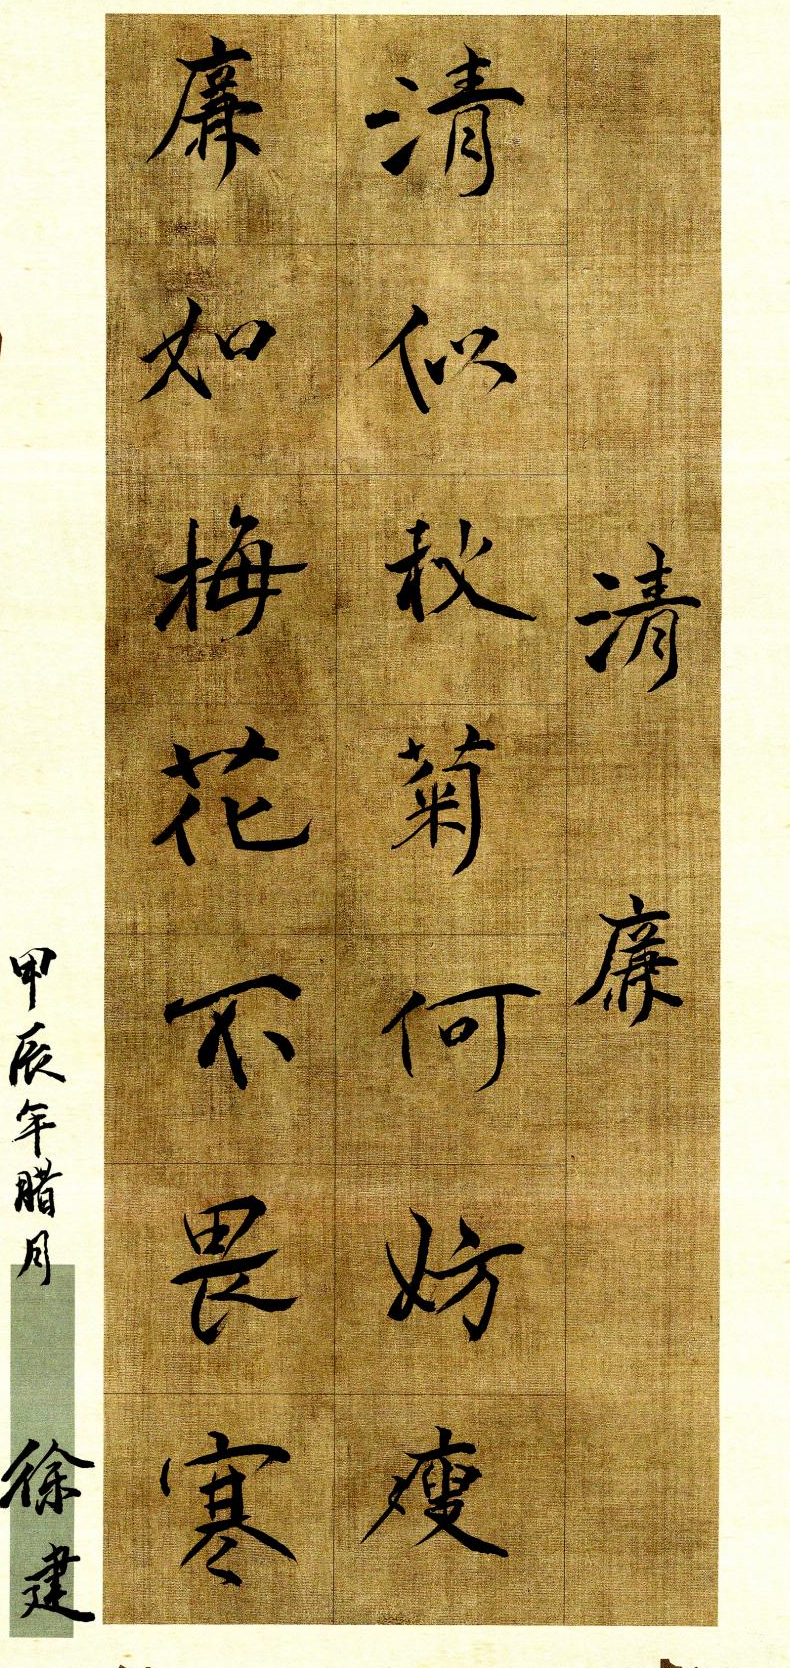 清廉
清似秋菊何妨瘦
廉如梅花不畏寒
甲辰年腊月
徐建